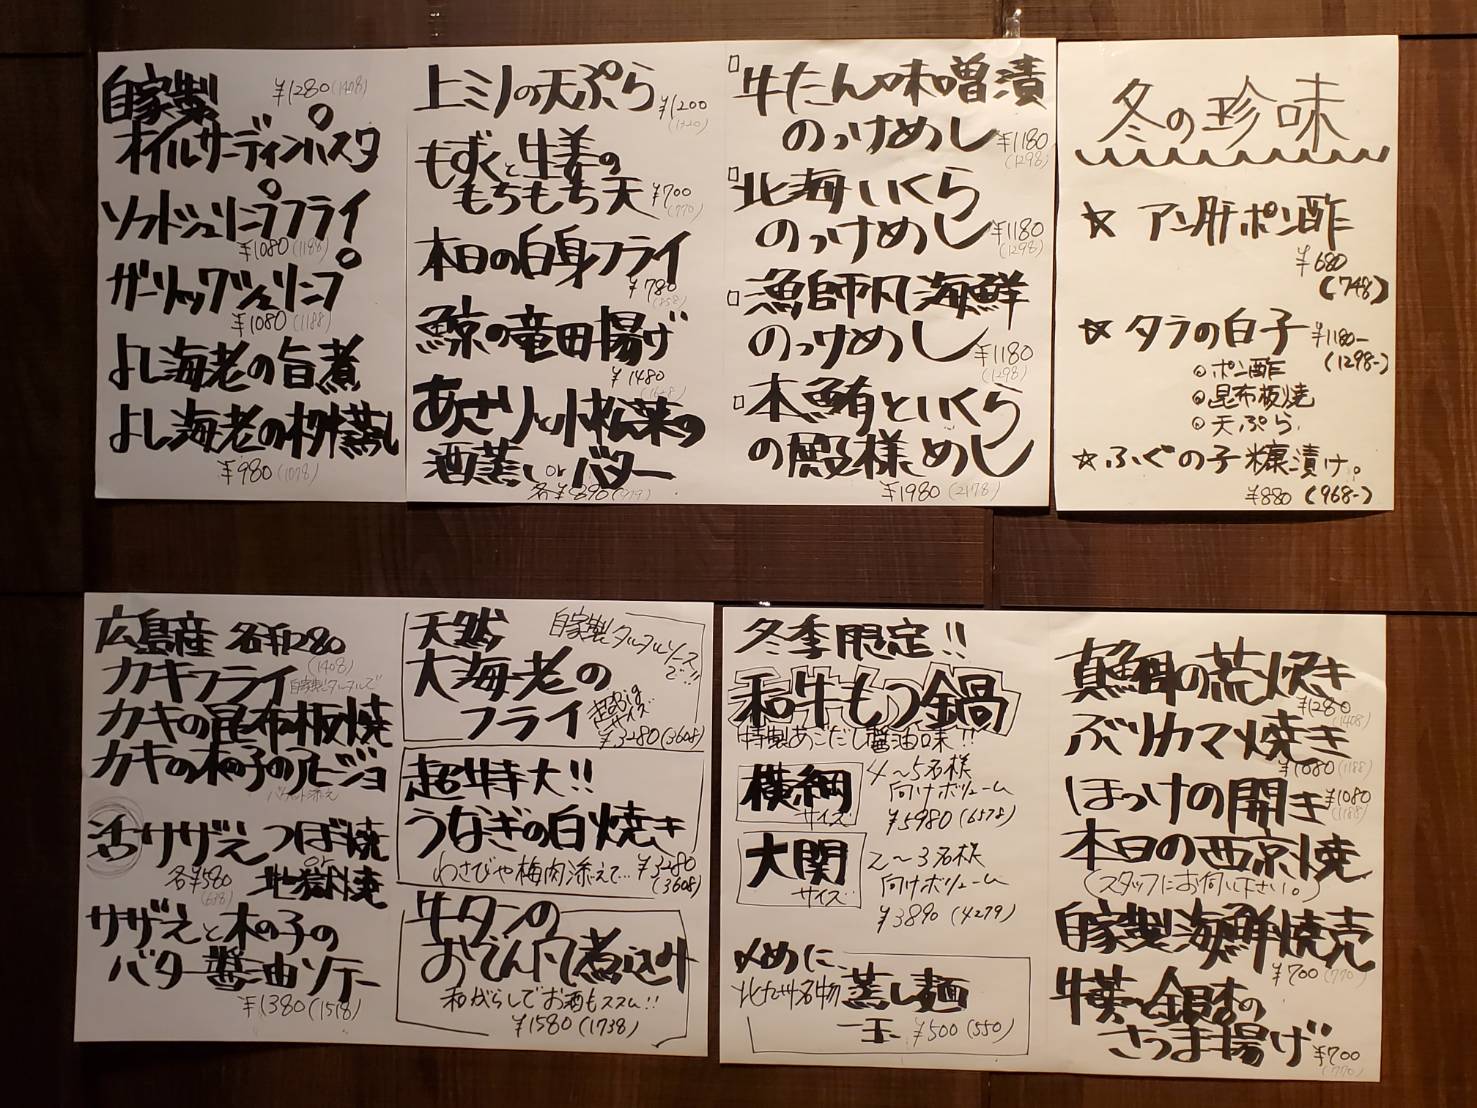 自家製
¥1280(1408)
オイルサーディンパスタ
ソフトシュリンプフライ
¥1080(1188)
ガーリックシュリンプ
¥1080(1188)
よし海老の旨煮
よし海老の材蒸し
¥980(1078)
上ミノの天ぷら
¥1200
(1320)
もずくと生姜の
もちもち天 ¥700
(770)
本日の白身フライ
¥780
(858)
鯨の竜田揚げ
¥1480
(1628)
あさりと小松菜の
酒蒸し or バター
各¥890(979)
牛たん味噌漬
のっけめし ¥1180
(1298)
北海いくら
のっけめし ¥1180
(1298)
漁師風海鮮
のっけめし ¥1180
(1298)
本鮪といくら
の殿様めし
¥1980(2178)
冬の珍味
☆ アン肝ポン酢
¥680
(748)
☆ タラの白子 ¥1180-
(1298-)
◎ポン酢
◎昆布板焼
◎天ぷら
☆ふぐの子糠漬け。
¥880(968-)
広島産 各¥1280
(1408)
カキフライ 自家製タルタルで
カキの昆布板焼
カキの木の子のアヒージョ
バケット添え
活サザえ つぼ焼
or
各¥580 地獄焼
(638)
サザえと木の子の
バター醤油ソテー
¥1380(1518)
天然 自家製タルタルソースで!!
大海老の
フライ 超Bigサイズ
¥3280(3608)
超特大!!
うなぎの白焼き
わさびや梅肉添えて… ¥3280
(3608)
牛タンの
おでん風煮込み
和がらしでお酒もススム!!
¥1580(1738)
冬季限定!!
和牛もつ鍋
特製あごだし醤油味!!
横綱
サイズ
4〜5名様
向けボリューム
¥5980(6578)
大関
サイズ
2〜3名様
向けボリューム
¥3890(4279)
〆めに
北九州名物 蒸し麺
一玉 ¥500(550)
真鯛の荒焼き
¥1280
(1408)
ぶりカマ焼き
¥1080(1188)
ほっけの開き ¥1080
(1188)
本日の西京焼
(スタッフにお伺い下さい。)
自家製海鮮焼売
¥700(770)
牛蒡と銀杏の
さつま揚げ ¥700
(770)